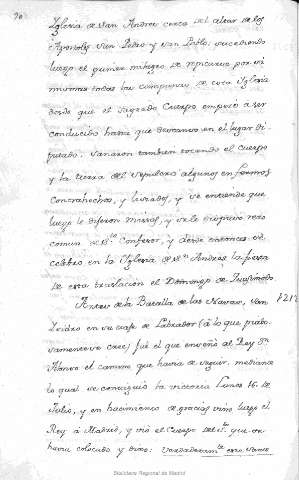 70
Yglesia de San Andres cerca del altar de los
Apostoles San Pedro y San Pablo, sucediendo
luego el primer milagro de repicarse por si
mismas todas las campanas de esta Yglesia
desde que el Sagrado Cuerpo empezó a ser
conducido hasta que descansó en el lugar di-
putado. Sanaron tambien tocando el cuerpo
y la tierra del sepulcro algunos enfermos
contrahechos, y lisiados, y se entiende que
luego le dijeron Missas, y se le compuso rezo
comun de S.to Confesor, y desde entonces se
celebra en la Yglesia de S.n Andres la fiesta
de esta traslacion el Domingo de Quasimodo
Antes de la Batalla de las Navas, San 1212
Ysidro en su trage de Labrador (á lo que piado-
samente se cree) fué el que enseñó al Rey D.n
Alonso el camino que havia de seguir, mediante
lo qual se consiguió la victoria Lunes 16 de
Julio, y en hacimiento de gracias vino luego el
Rey á Madrid, y vió el Cuerpo del S.to que es-
tava colocado y dixo: Verdaderam.te este Santo
Biblioteca Regional de Madrid